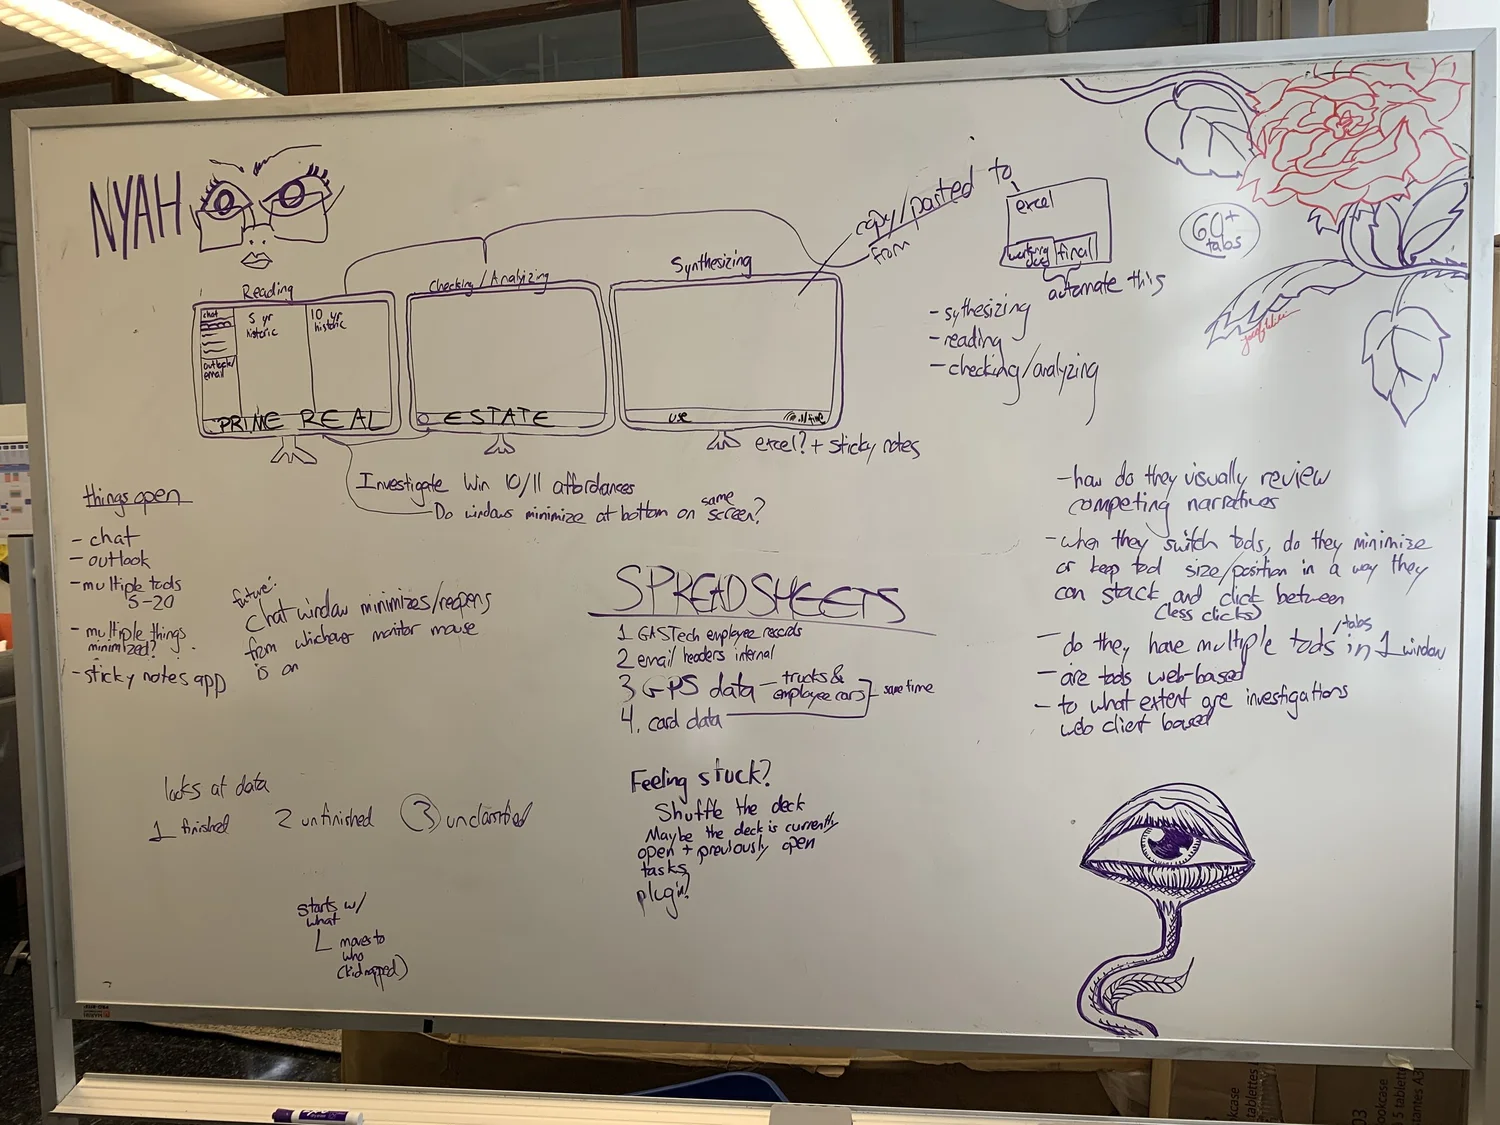 NYAH
Reading
Checking/Analyzing
Synthesizing
chat
outlook/
email
5 yr
historic
10 yr
historic
PRIME REAL
ESTATE
use
excel? + sticky notes
copy/pasted to
from
excel
working
final
automate this
60+
tabs
- sythesizing
- reading
- checking/analyzing
Investigate Win 10/11 affordances
Do windows minimize at bottom on same screen?
things open
- chat
- outlook
- multiple tools
5-20
- multiple things
minimized?
- sticky notes app
future:
chat window minimizes/reopens
from whichever monitor mouse
is on
SPREADSHEETS
1 GASTech employee records
2 email headers internal
3 GPS data - trucks &
employee cars
same time
4. card data
- how do they visually review
competing narratives
- when they switch tools, do they minimize
or keep tool size/position in a way they
can stack and click between
(less clicks)
- do they have multiple tools/tabs in 1 window
- are tools web-based
- to what extent are investigations
web client based
looks at data
1 finished
2 unfinished
3 unclassified
Feeling stuck?
Shuffle the deck
Maybe the deck is currently
open + previously open
tasks
plugin?
starts w/
what
moves to
who
(kidnapped)